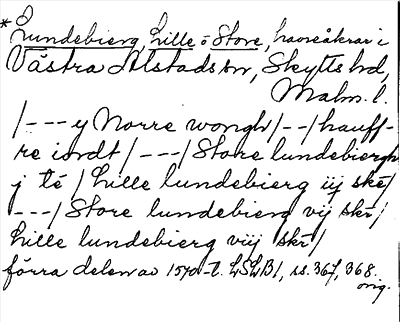 * Lundebierg, Lille o Store, havreåkrar i
Västra Alstads sn, Skytts hd,
Malm. l.
/--- y Norre wongh/--/hauff-
re iordt/---/Store lundebiergh
j té/ lille lundebierg iij ské/
---/Store lundebierg vij skr/
lille lundebierg viij skr/
förra delen av 1570-t. LSLB1, ss. 367, 368.
orig.